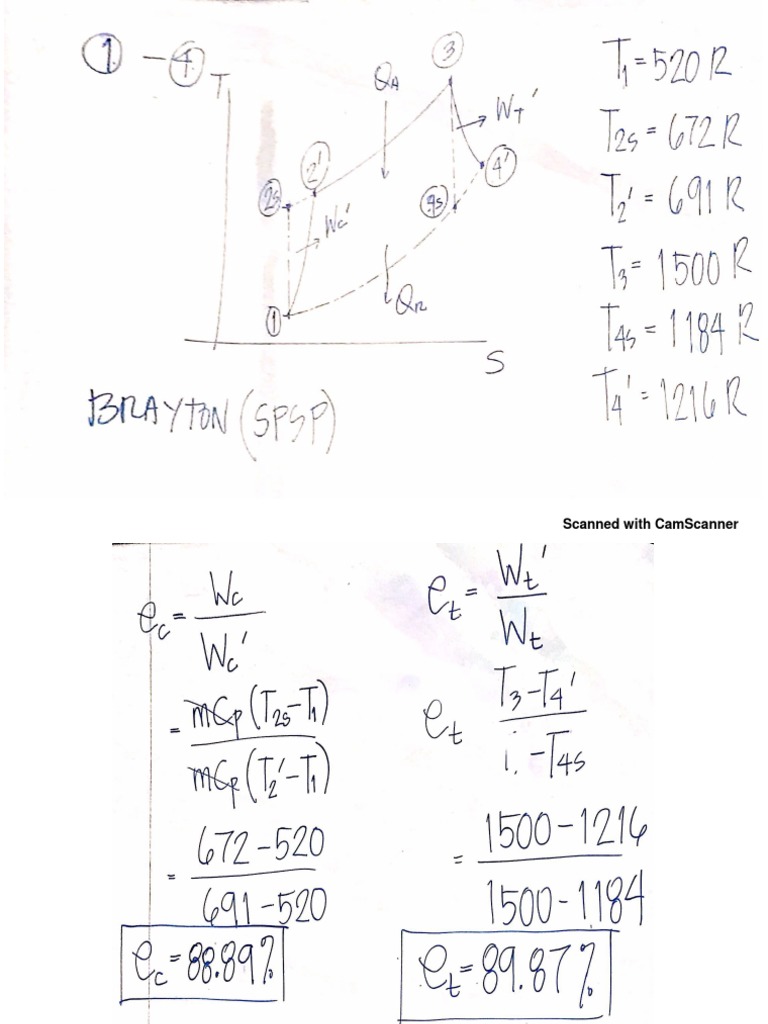 ① – ④
T
S
③
Q_A
W_T'
②'
②s
W_c'
④'
④s
Q_R
①
BRAYTON (SPSP)
T₁ = 520 R
T₂s = 672 R
T₂' = 691 R
T₃ = 1500 R
T₄s = 1184 R
T₄' = 1216 R
Scanned with CamScanner
e_c = W_c / W_c'
= mCp (T₂s – T₁) / mCp (T₂' – T₁)
= 672 – 520 / 691 – 520
e_c = 88.89%
e_t = W_t' / W_t
e_t T₃ – T₄' / – T₄s
= 1500 – 1216 / 1500 – 1184
e_t = 89.87%